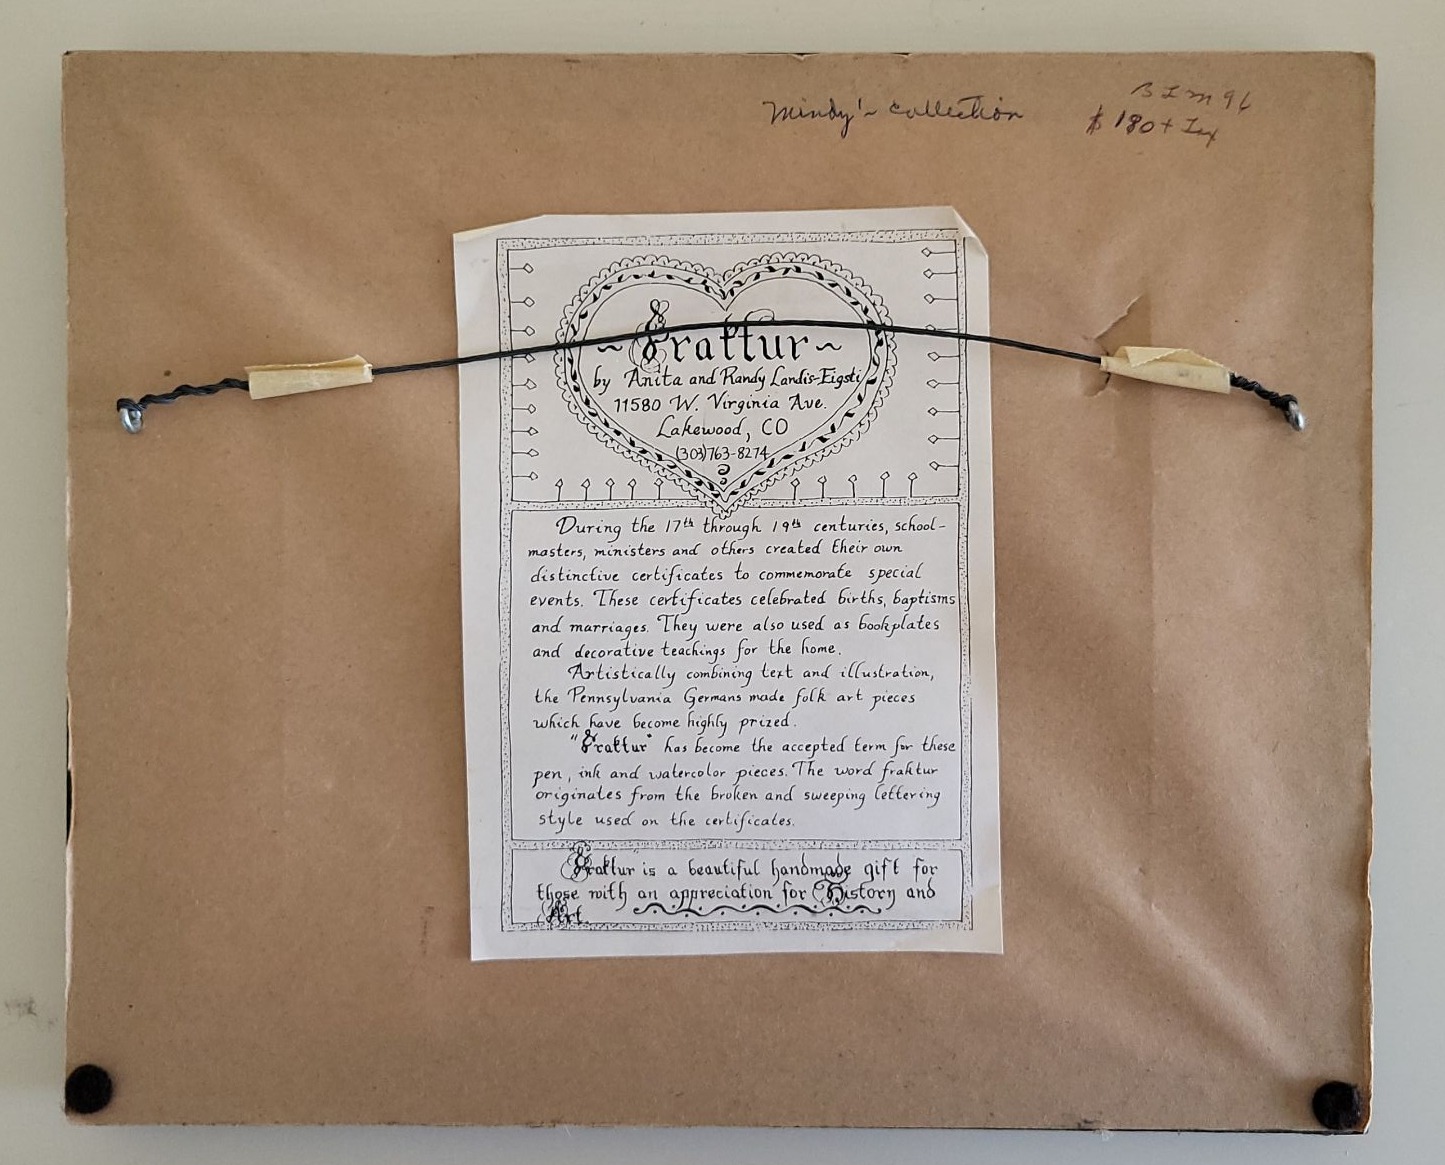 Mindy's Collection
$180 + Tax
~ Fraktur ~
by Anita and Randy Landis-Eigsti
11580 W. Virginia Ave.
Lakewood, CO
(303)763-8274
During the 17th through 19th centuries, school-
masters, ministers and others created their own
distinctive certificates to commemorate special
events. These certificates celebrated births, baptisms
and marriages. They were also used as bookplates
and decorative teachings for the home.
Artistically combining text and illustration,
the Pennsylvania Germans made folk art pieces
which have become highly prized.
"Fraktur" has become the accepted term for these
pen, ink and watercolor pieces. The word fraktur
originates from the broken and sweeping lettering
style used on the certificates.
Fraktur is a beautiful handmade gift for
those with an appreciation for History and
Art.